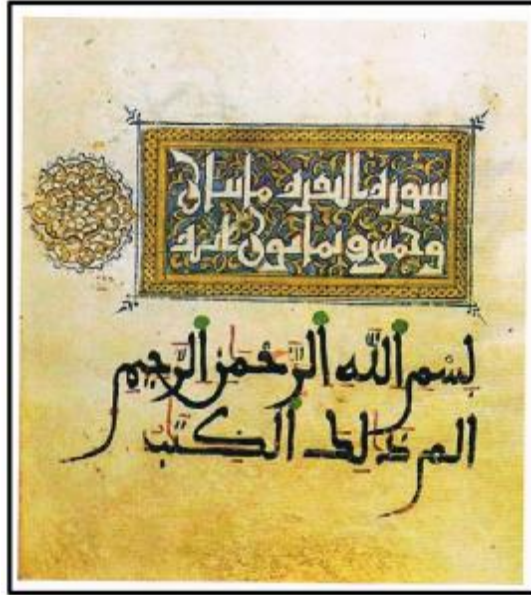 سورة البقرة مايتان
وخمس وثمانون آية
بِسْمِ اللَّهِ الرَّحْمٰنِ الرَّحِيمِ
الم ذٰلِكَ الْكِتٰبُ